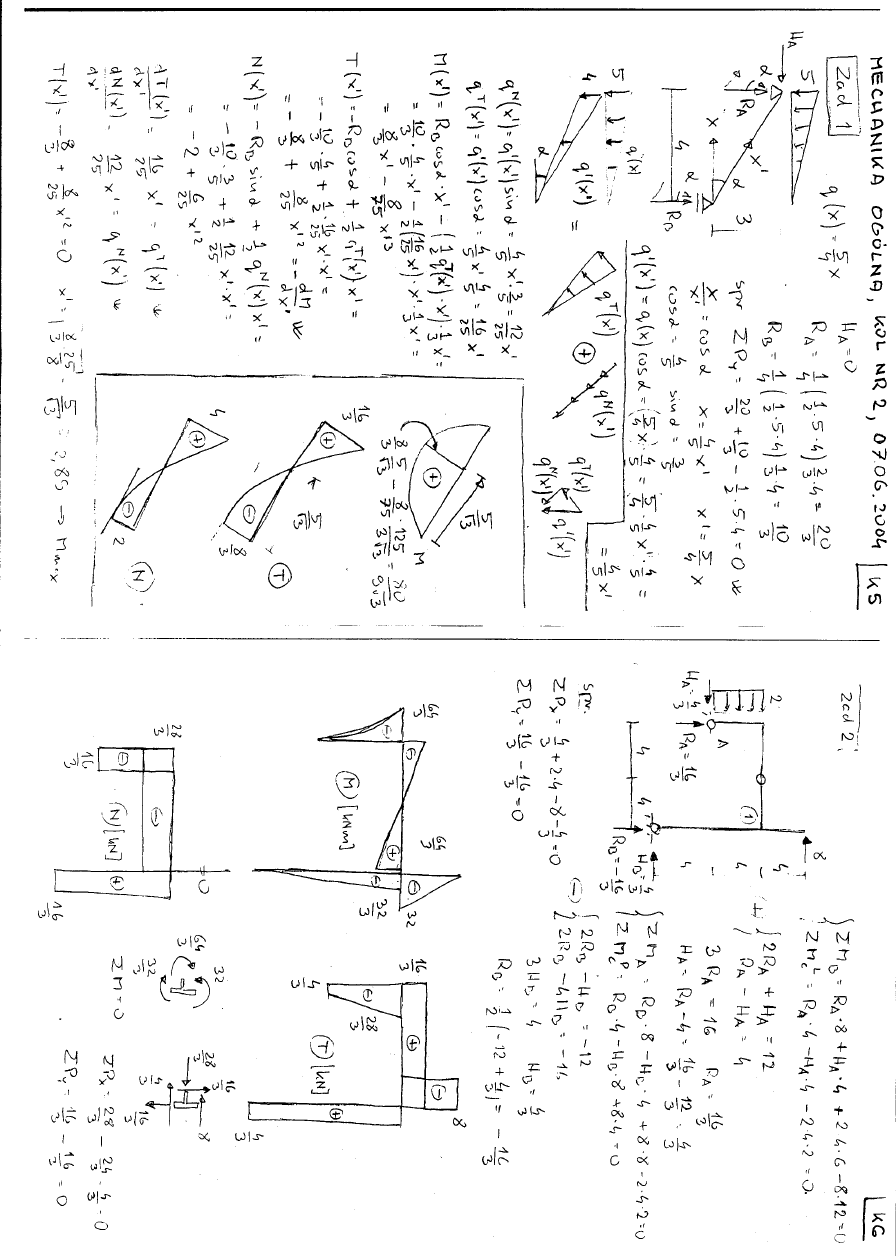 MECHANIKA OGÓLNA, KOL NR 2, 07.06.2004
K5
Zad 1
q(x) = 5/4 x
5
H_A
α
R_A
x
x'
α
3
4
R_B
H_A = 0
R_A = 1/4 (1/2·5·4) 2/3·4 = 20/3
R_B = 1/4 (1/2·5·4) 1/3·4 = 10/3
spr ΣP_y = 20/3 + 10/3 − 1/2·5·4 = 0
x/x' = cosα x = 4/5 x' x' = 5/4 x
cosα = 4/5 sinα = 3/5
q'(x') = q(x) cosα = (5/4 x)·4/5 = 5/4·4/5 x'·4/5 =
= 4/5 x'
5
q(x)
4
q'(x')
α
=
q^T(x')
+
q^N(x')
q^T(x')
q^N(x')
α
q'(x')
q^N(x') = q'(x') sinα = 4/5 x'·3/5 = 12/25 x'
q^T(x') = q'(x') cosα = 4/5 x'·4/5 = 16/25 x'
M(x') = R_B cosα·x' − (1/2 q^T(x')·x')·1/3 x' =
= 10/3·4/5 x' − 1/2 (16/25 x')·x'·1/3 x' =
= 8/3 x' − 8/75 x'³
T(x') = −R_B cosα + 1/2 q^T(x') x' =
= −10/3·4/5 + 1/2·16/25 x'·x' =
= −8/3 + 8/25 x'² = −dM/dx'
N(x') = −R_B sinα + 1/2 q^N(x') x' =
= −10/3·3/5 + 1/2·12/25 x'·x' =
= −2 + 6/25 x'²
dT(x')/dx' = 16/25 x' = q^T(x')
dN(x')/dx' = 12/25 x' = q^N(x')
T(x') = −8/3 + 8/25 x'² = 0 x' = √(8/3·25/8) = 5/√3 = 2,89 → Mmax
5/√3
+
M
8/3·5/√3 − 8/75·125/3√3 = 80/9√3
16/3
+
5/√3
−
8/3
T
4
+
−
2
N
K6
Zad 2
2
H_A = 4/3
A
R_A = 16/3
1
8
4
4
4
4
H_B = 4/3
R_B = −16/3
{ΣM_B = R_A·8 + H_A·4 + 2·4·6 − 8·12 = 0
ΣM_C^L = R_A·4 − H_A·4 − 2·4·2 = 0
+ {2R_A + H_A = 12
R_A − H_A = 4
3R_A = 16 R_A = 16/3
H_A = R_A − 4 = 16/3 − 12/3 = 4/3
{ΣM_A = R_B·8 − H_B·4 + 8·8 − 2·4·2 = 0
ΣM_C^P = R_B·4 − H_B·8 + 8·4 = 0
(−) {2R_B − H_B = −12
2R_B − 4H_B = −16
3H_B = 4 H_B = 4/3
R_B = 1/2 (−12 + 4/3) = −16/3
spr.
ΣP_x = 4/3 + 2·4 − 8 − 4/3 = 0
ΣP_y = 16/3 − 16/3 = 0
64/3
−
−
M [kNm]
64/3
+
32/3
−
−
32
16/3
4/3
−
28/3
+
T [kN]
−
8
+
4/3
28/3
16/3
−
−
N [kN]
=0
+
16/3
64/3
32
32/3
ΣM=0
28/3
16/3
8
4/3
16/3
ΣP_x = 28/3 − 24/3 − 4/3 = 0
ΣP_y = 16/3 − 16/3 = 0